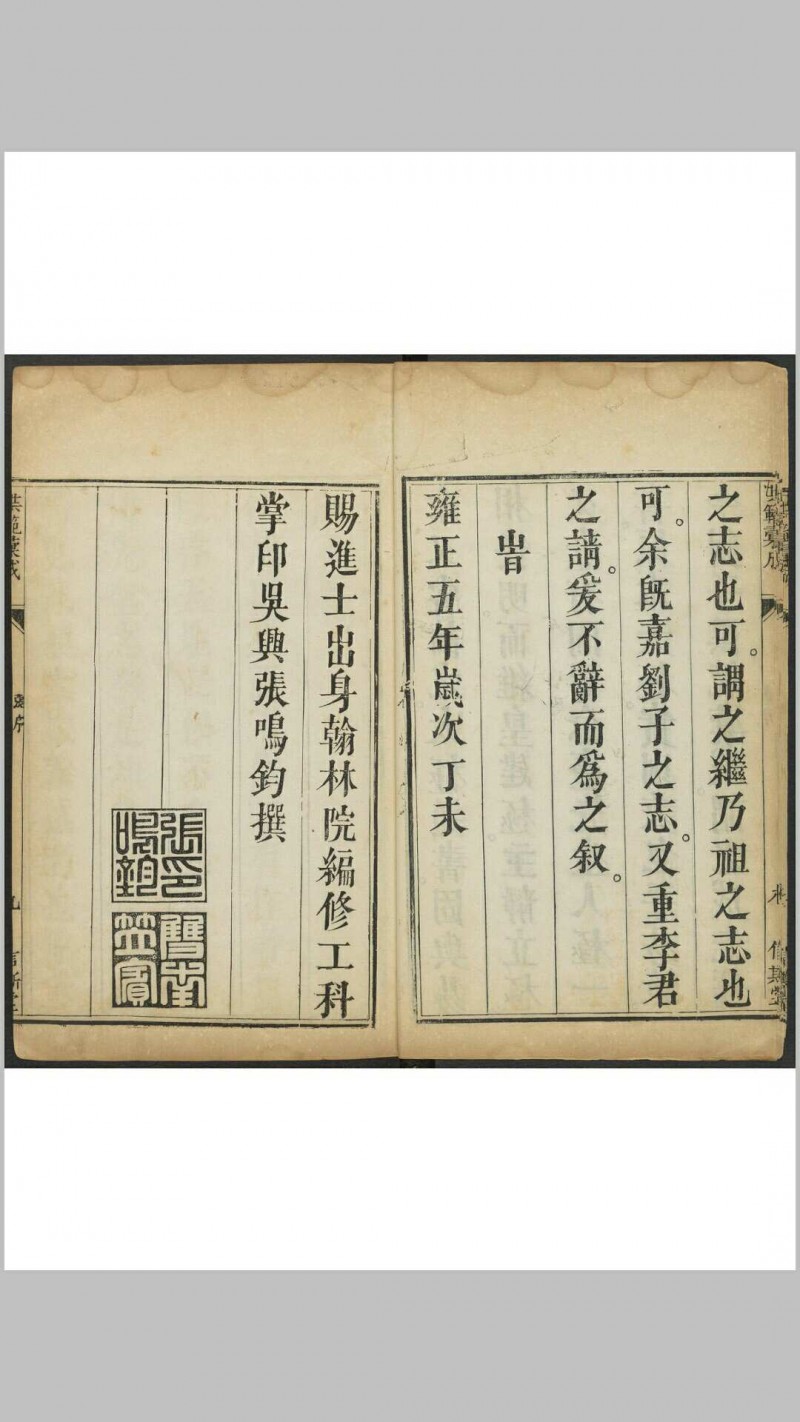 之志也可。謂之繼乃祖之志也
可。余既嘉劉子之志。又重李君
之請。爰不辭而爲之叙。
旹
雍正五年歲次丁未
賜進士出身翰林院編修工科
掌印吳興張鳴鈞撰
張印鳴鈞